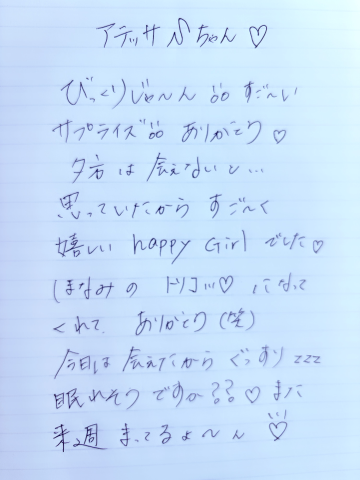 アテッサSちゃん♡
びっくりじゃ〜ん!!! すご〜い
サプライズ!!! ありがとう♡
夕方は会えないと…
思っていたから すご〜く
嬉しい happy Girl でした♡
ほなみの トリコッ♡ になって
くれて ありがとう(笑)
今日は会えたから ぐっすり zzz
眠れそうですか??♡ また
来週 まってるよ〜ん ♡